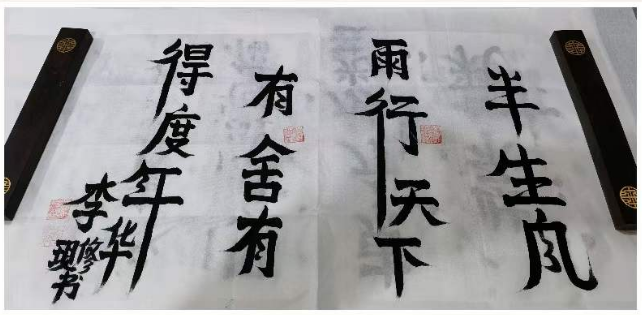 半生风
雨行天下
有舍有
得度年华
李修现书